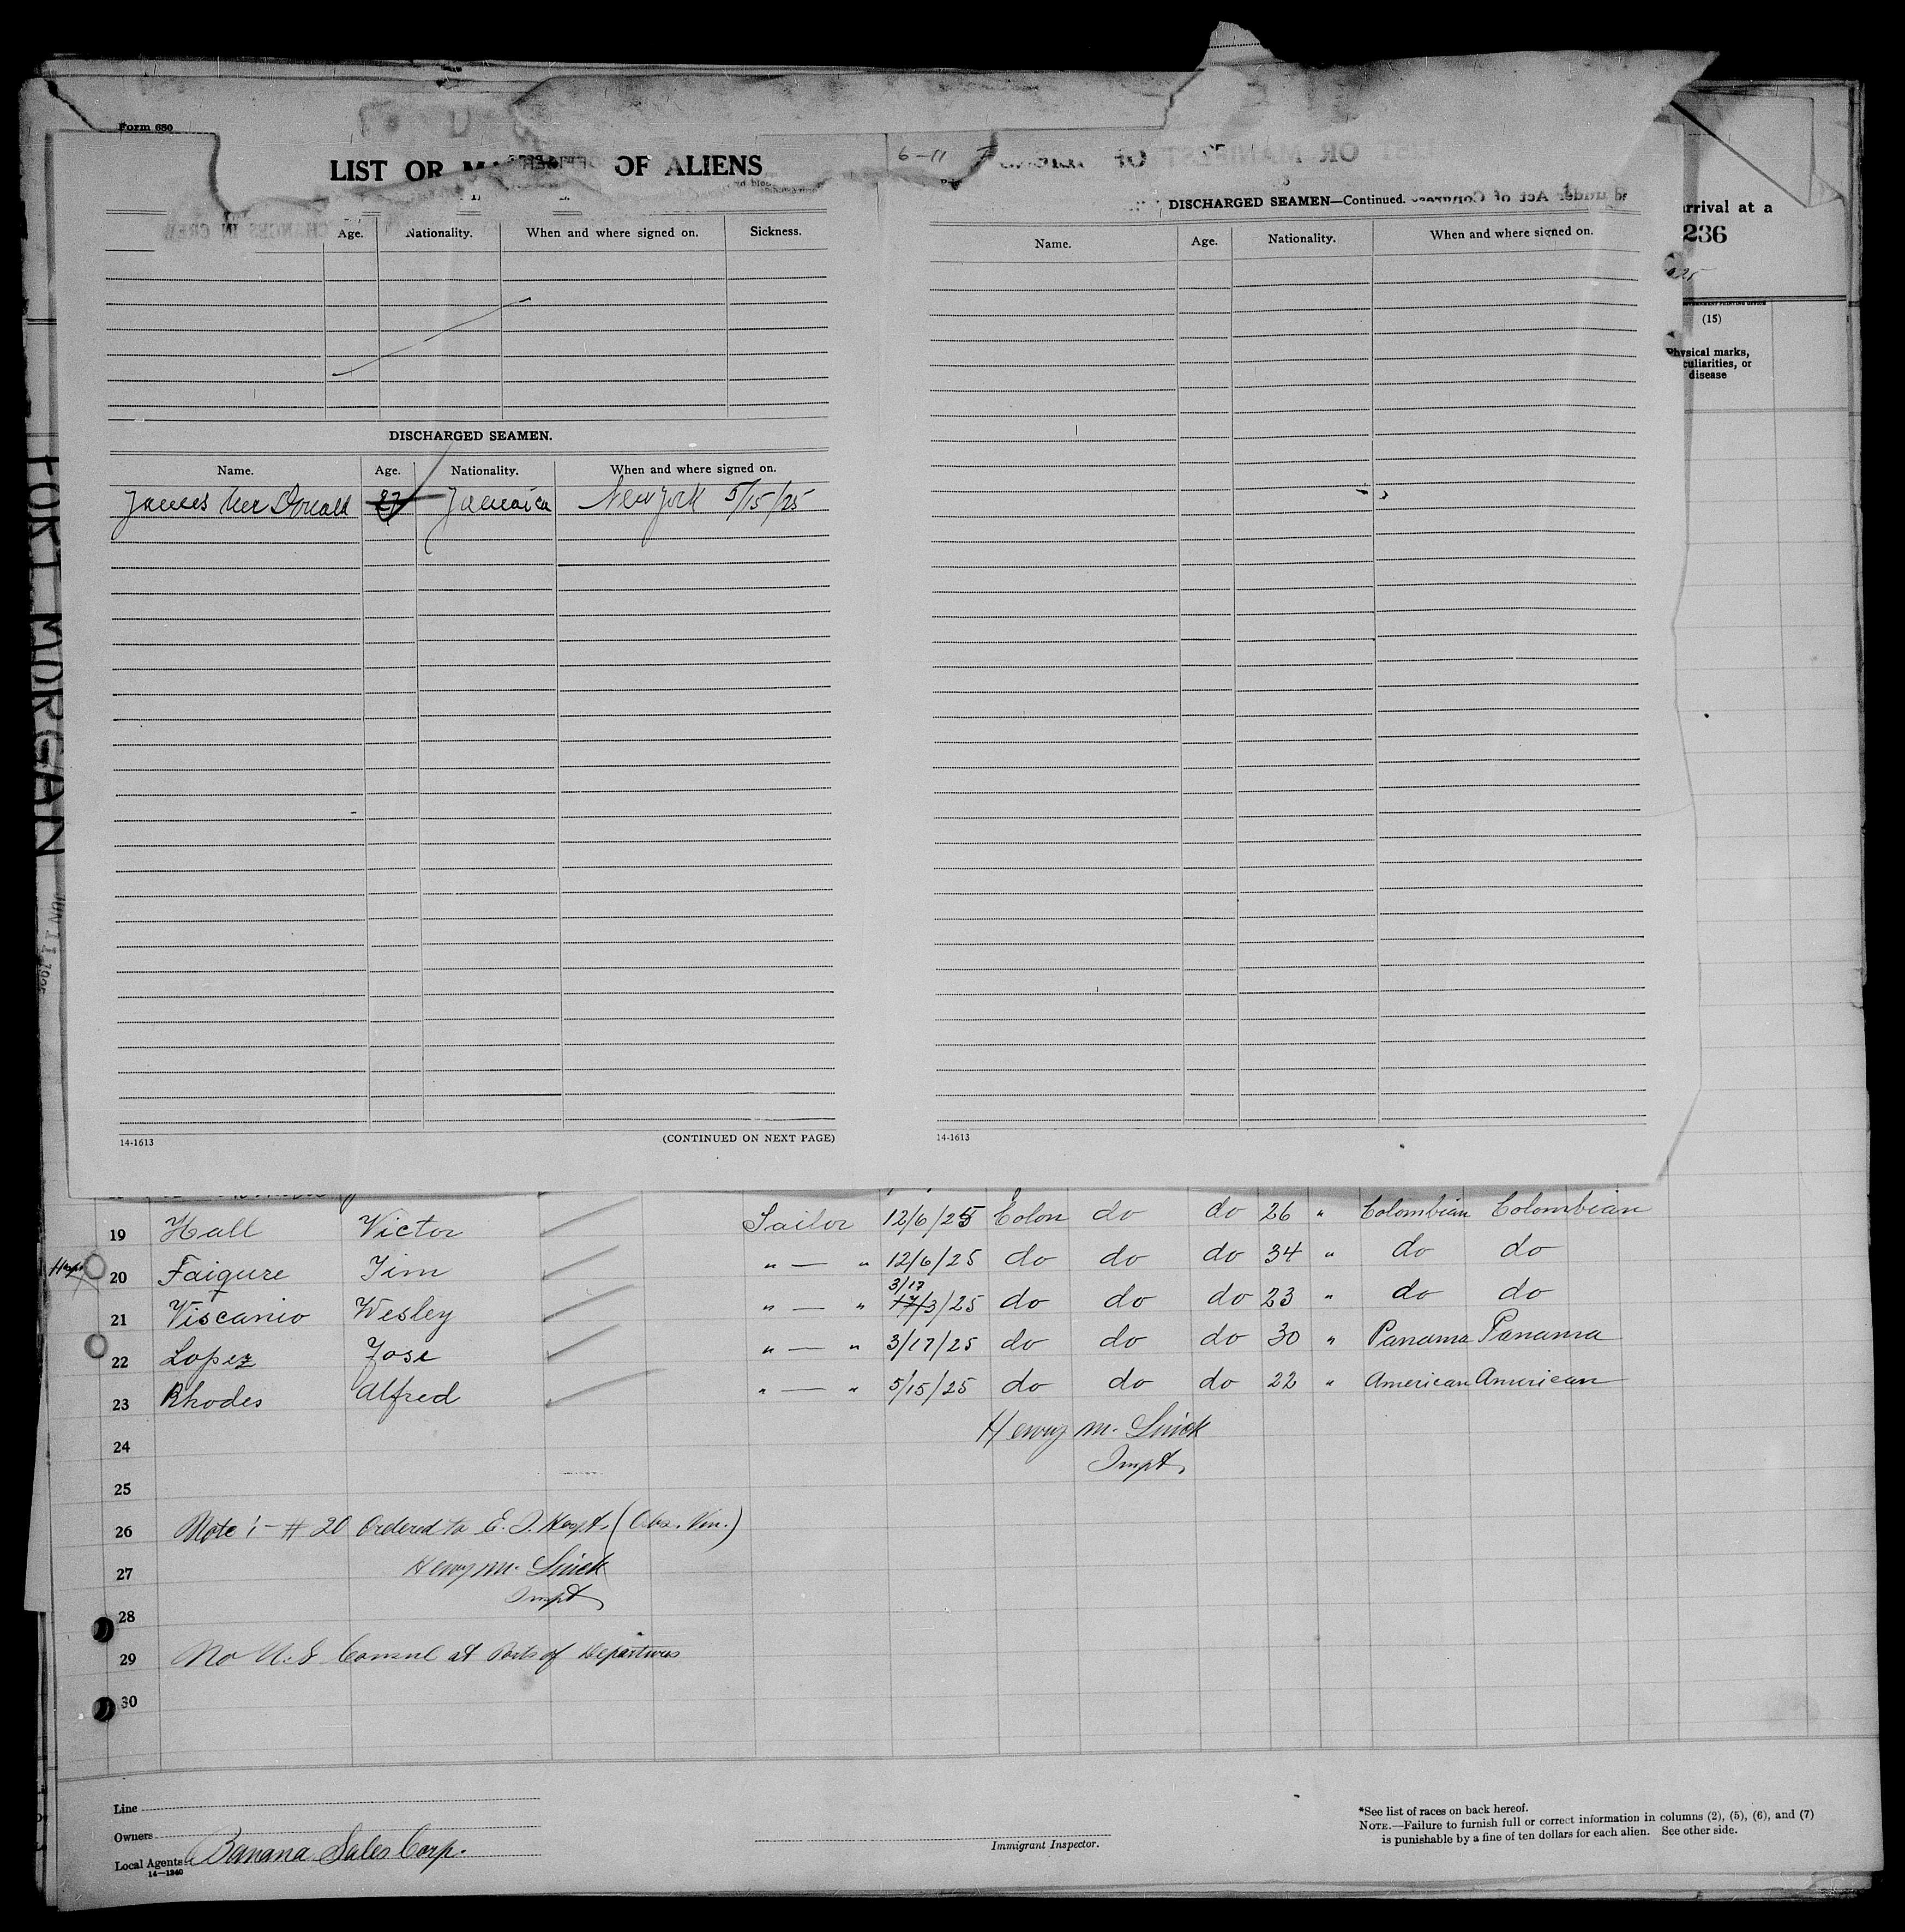 Form 680
LIST OR OF ALIENS
Age. Nationality. When and where signed on. Sickness.
DISCHARGED SEAMEN.
Name. Age. Nationality. When and where signed on.
James McDonald 27 Jamaica New York 5/15/25
14-1613 (CONTINUED ON NEXT PAGE)
6-11
DISCHARGED SEAMEN—Continued.
Name. Age. Nationality. When and where signed on.
14-1613
arrival at a
236
(15)
Physical marks,
culiarities, or
disease
FORT MORGAN
JUN 11 1925
19 Hall Victor Sailor 12/6/25 Colon do do 26 " Colombian Colombian
20 Faigure Jim " — " 12/6/25 do do do 34 " do do
3/17
21 Viscanio Wesley " — " 17/3/25 do do do 23 " do do
22 Lopez Jose " — " 3/17/25 do do do 30 " Panama Panama
23 Rhodes Alfred " — " 5/15/25 do do do 22 " American American
24 Henry M.
25 Inspt.
26 Note :- # 20 Ordered to E. I. Hospt. (Obs. Ven.)
27 Henry M.
28 Inspt
29 No U.S Consul at Ports of Departures
30
Line
Owners
Local Agents Banana Sales Corp.
14—1240
Immigrant Inspector.
*See list of races on back hereof.
NOTE.—Failure to furnish full or correct information in columns (2), (5), (6), and (7)
is punishable by a fine of ten dollars for each alien. See other side.